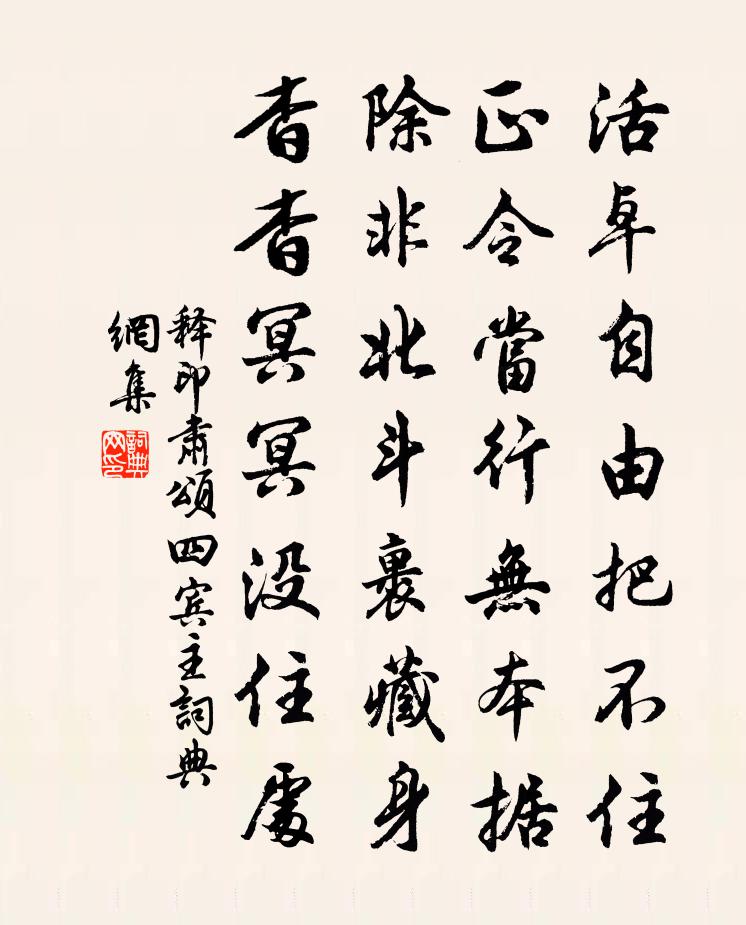 活卓自由把不住
正令當行無本据
除非北斗裹藏身
杳杳冥冥没住處
释印肅頌四宾主詞典
網集
詞典网印